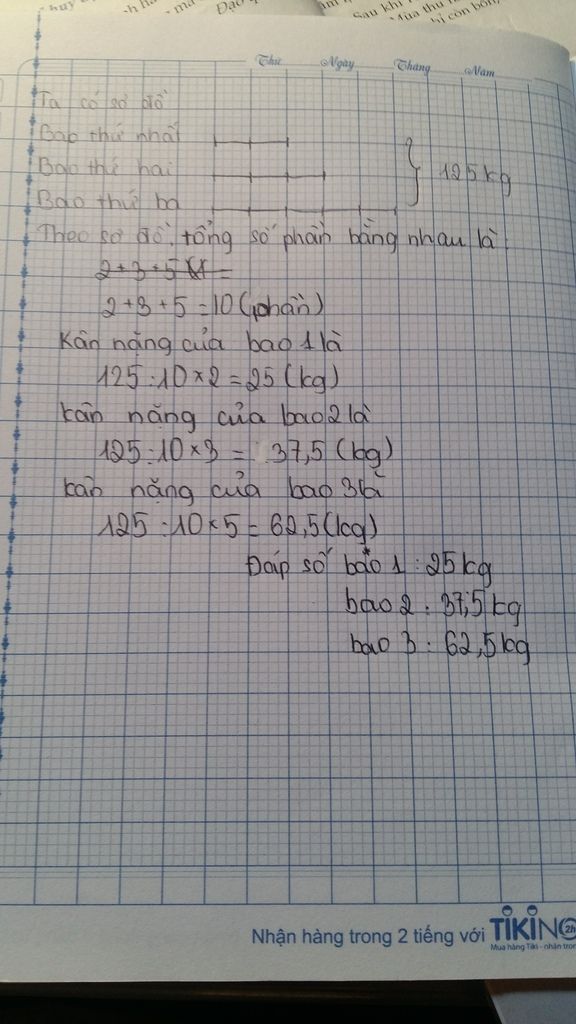 Sau khi
Mùa thu
bị còn bốn,
Thứ Ngày Tháng Năm
Ta có sơ đồ
Bao thứ nhất
Bao thứ hai
125kg
Bao thứ ba
Theo sơ đồ, tổng số phần bằng nhau là:
2+3+5
2+3+5=10 (phần)
Kân nặng của bao 1 là
125:10×2=25 (kg)
kân nặng của bao 2 là
125:10×3= 37,5 (kg)
kân nặng của bao 3 là
125:10×5=62,5 (kg)
Đáp số bao 1: 25kg
bao 2: 37,5 kg
bao 3: 62,5kg
Nhận hàng trong 2 tiếng với TIKINO 2h
Mua hàng Tiki - nhận tron